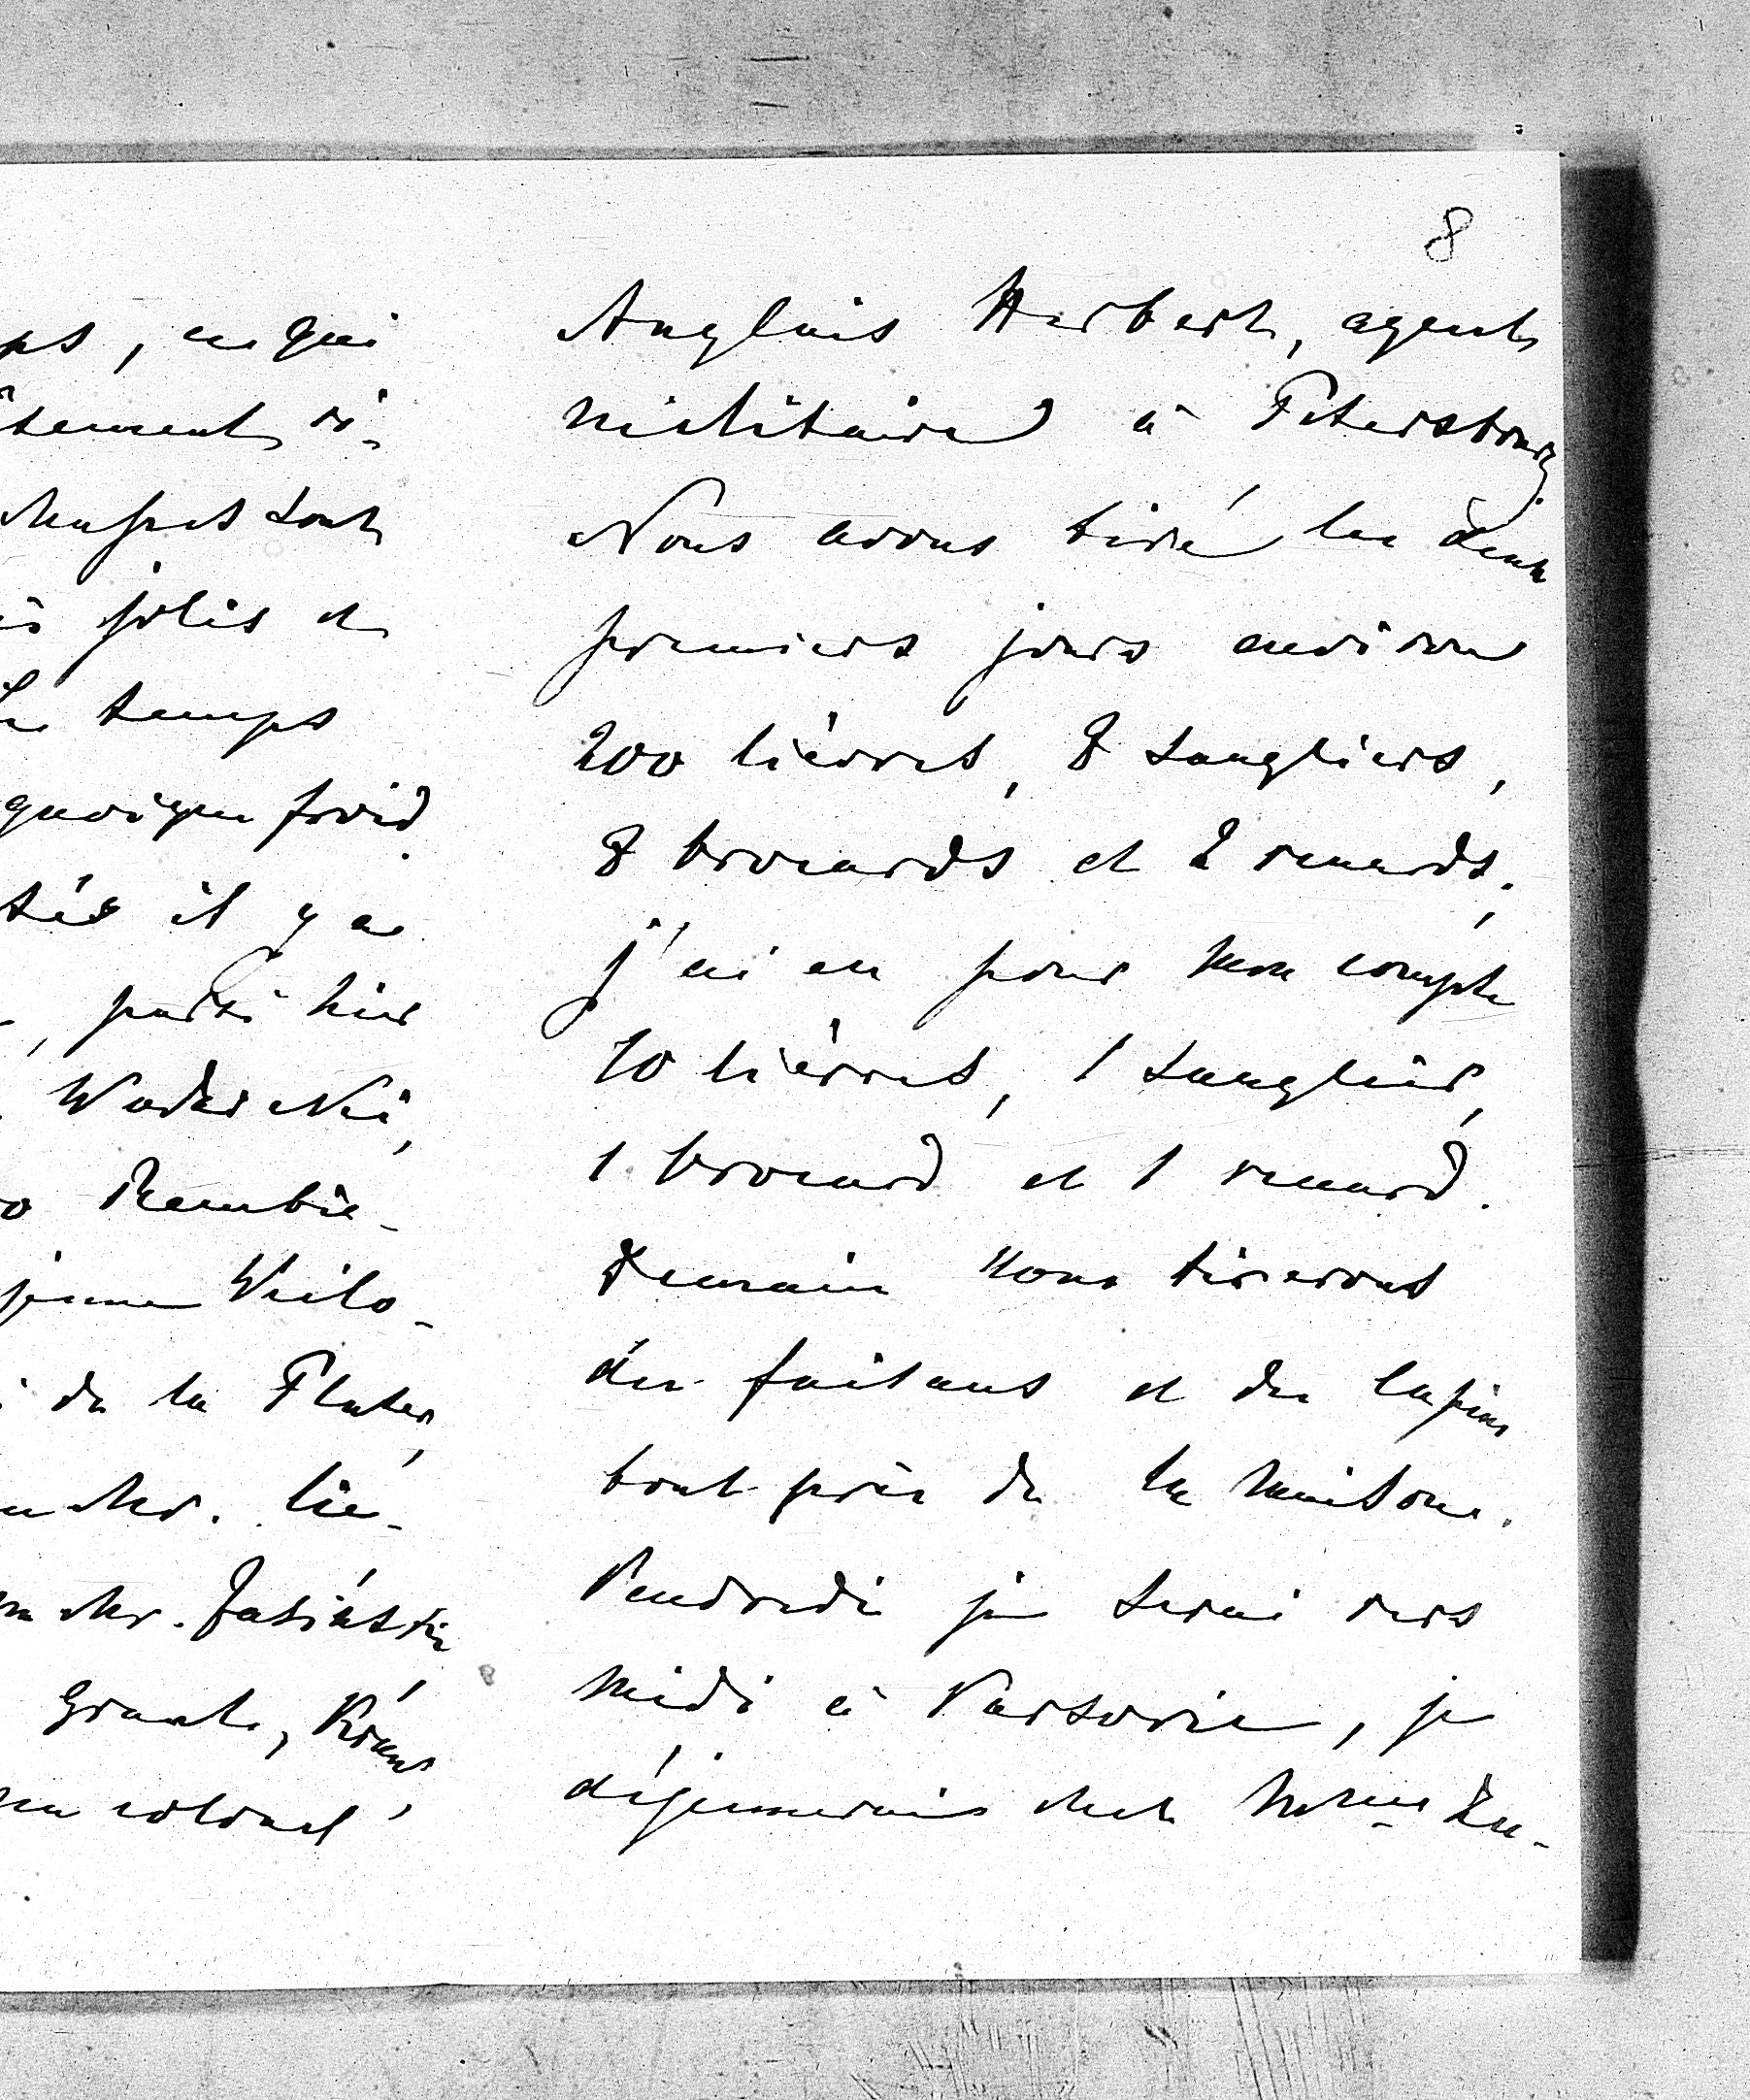 ps, ce qui
tement ré-
sont
jolis et
temps
quoique froid.
tés il y a
, parti hier
Wodzicki,
Rembie-
jeune Wielo-
de la Plater,
Mr. Lie-
Mr. Jasiński
Grant, Kraus,
un colonel
8
Anglais Herbert, agent
militaire à Petersbourg.
Nous avons tiré les deux
premiers jours environ
200 lièvres, 8 sangliers,
8 brocards et 2 renards;
j'ai eu pour mon compte
10 lièvres, 1 sanglier,
1 brocard et 1 renard.
Demain nous tirerons
des faisans et des lapins
tout près de la maison.
Vendredi je serai vers
midi à Varsovie, je
déjeunerais chez Mme Zu-